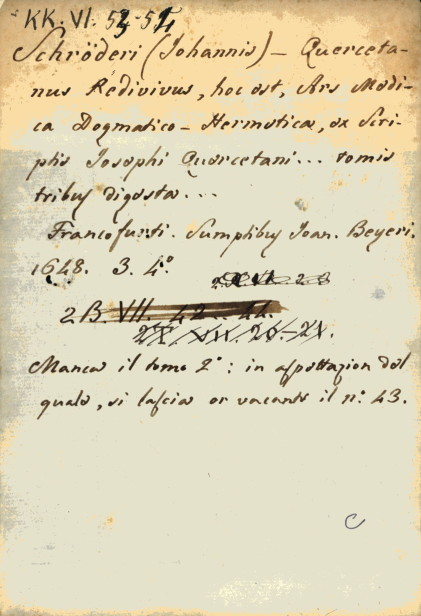 KK. VI. 53-54
Schröderi (Johannis) – Querceta-
nus Redivivus, hoc est, Ars Medi-
ca Dogmatico – Hermetica, ex Scri-
ptis Josephi Quercetani... tomis
tribus digesta...
Francofurti. Sumptibus Joan. Beyeri.
1648. 3. 4.º
2 B. VII. 42.. 44.
Manca il tomo 2º: in aspettazion del
quale, si lascia or vacante il nº. 43.
C